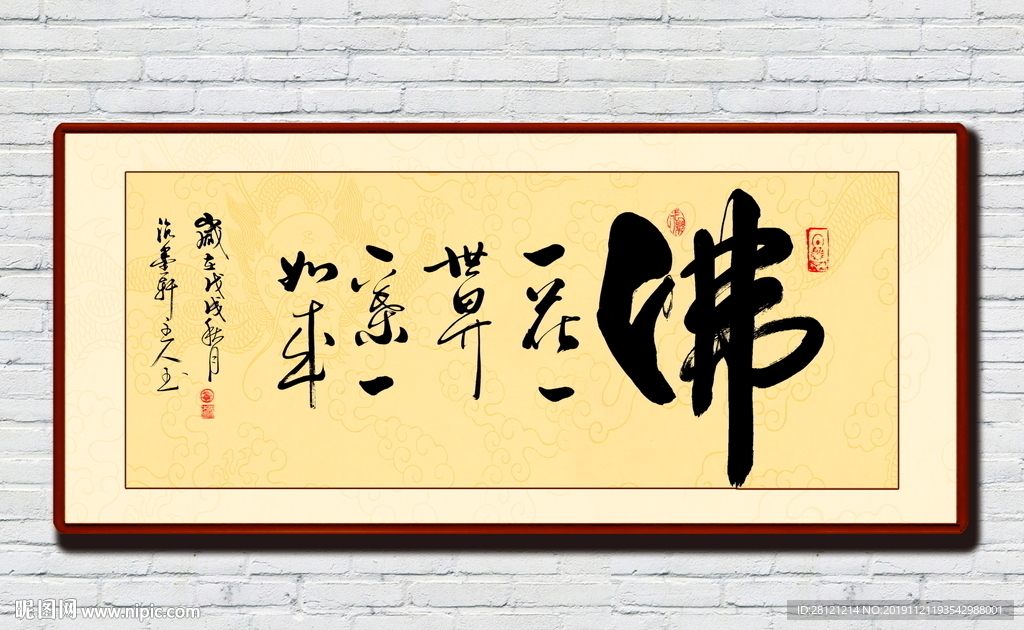 佛
一花一
世界
一葉一
如来
歲在戊戌秋月
墨軒主人
昵图网 www.nipic.com
ID:28121214 NO:20191121193542988001